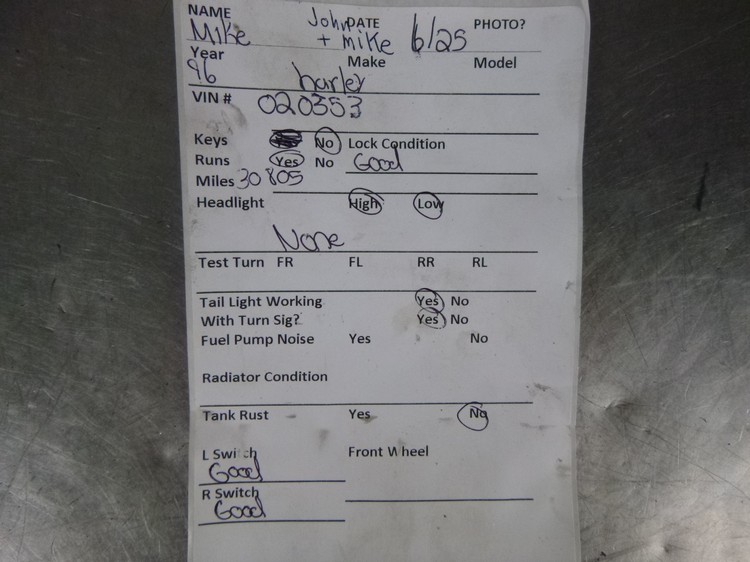 NAME John DATE PHOTO?
Mike + mike 6/25
Year Make Model
96 harley
VIN # 020353
Keys No Lock Condition
Runs Yes No Good
Miles 30805
Headlight High Low
None
Test Turn FR FL RR RL
Tail Light Working Yes No
With Turn Sig? Yes No
Fuel Pump Noise Yes No
Radiator Condition
Tank Rust Yes No
L Switch Front Wheel
Good
R Switch
Good